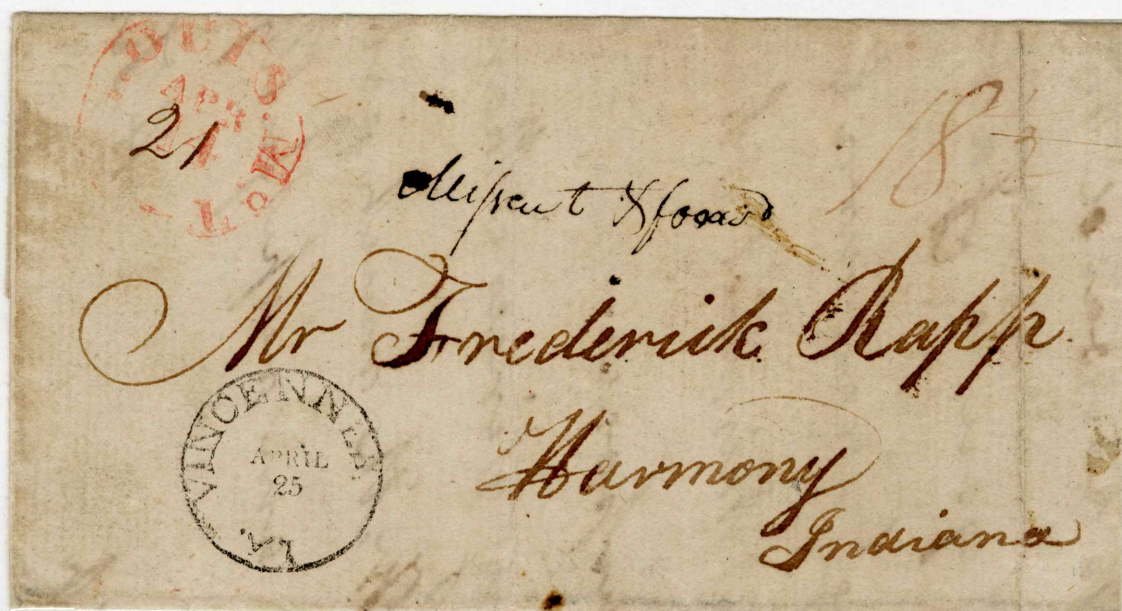 LOUIS. Mo. T.
APR
14
21
18 1/2
Missent & forward
Mr Frederick Rapp
Harmony
Indiana
VINCENNES
APRIL
25
IA.